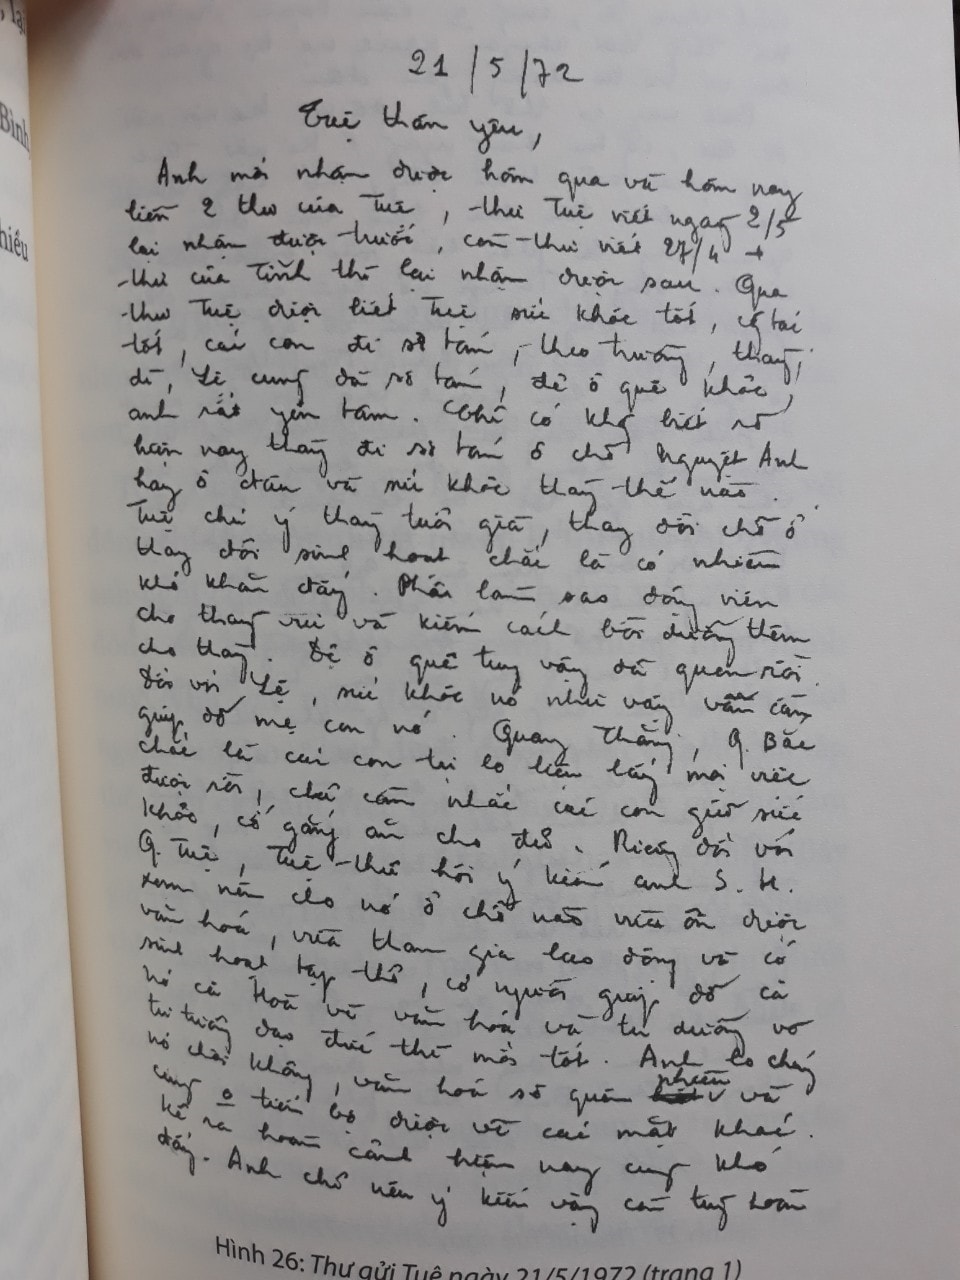 lại
Bình
hiều
21/5/72
Tuệ thân yêu,
Anh mới nhận được hôm qua và hôm nay
liền 2 thư của Tuệ, thư Tuệ viết ngày 2/5
lại nhận được trước, còn thư viết 27/4 +
thư của Tĩnh thì lại nhận được sau. Qua
thư Tuệ được biết Tuệ sức khỏe tốt, công tác
tốt, các con đi sơ tán, theo trường, thầy,
dì, Lệ cũng đã sơ tán, Đệ ở quê khỏe,
anh rất yên tâm. Chỉ có không biết rõ
hiện nay thầy đi sơ tán ở chỗ Nguyệt Anh
hay ở đâu và sức khỏe thầy thế nào.
Tuệ chú ý thầy tuổi già, thay đổi chỗ ở
thay đổi sinh hoạt chắc là có nhiều
khó khăn đấy. Phải làm sao động viên
cho thầy vui và kiếm cách bồi dưỡng thêm
cho thầy. Đệ ở quê tuy vậy đã quen rồi.
Đối với Lệ, sức khỏe nó như vậy vẫn cần
giúp đỡ mẹ con nó. Quang Thắng, Q. Bắc
chắc là các con tự lo liệu lấy mọi việc
được rồi, chỉ cần nhắc các con giữ sức
khỏe, cố gắng ăn cho đủ. Riêng đối với
Q. Tuệ, Tuệ thử hỏi ý kiến anh S. H.
xem nên cho nó ở chỗ nào vừa ôn được
văn hoá, vừa tham gia lao động và có
sinh hoạt tập thể, có người giúp đỡ cả
nó cả Hoà về văn hoá và tu dưỡng về
tư tưởng đạo đức thì mới tốt. Anh lo cháu
nó chơi không, văn hoá sẽ quên nhiều và
cũng o tiến bộ được về các mặt khác.
Kể ra hoàn cảnh hiện nay cũng khó
đấy. Anh chỉ nêu ý kiến vậy còn tuỳ hoàn
Hình 26: Thư gửi Tuệ ngày 21/5/1972 (trang 1)